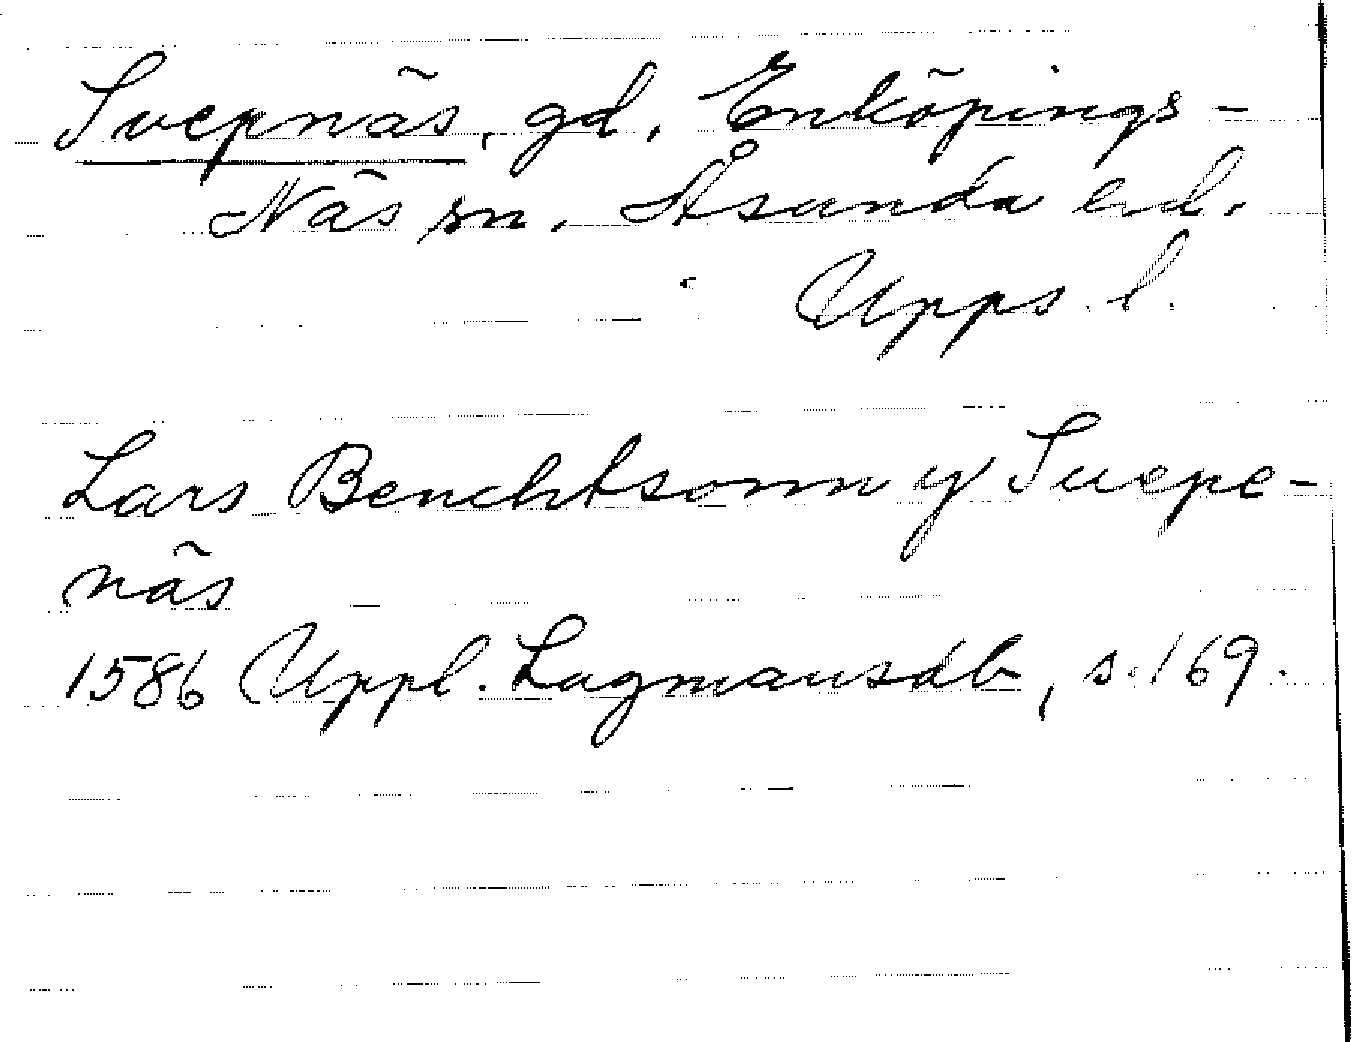 Svepnäs, gd, Enköpings-
Näs sn. Åsunda hd.
Upps. l.
Lars Benchtsonn y Suepe-
näs
1586 Uppl. Lagmansdb, s. 169.